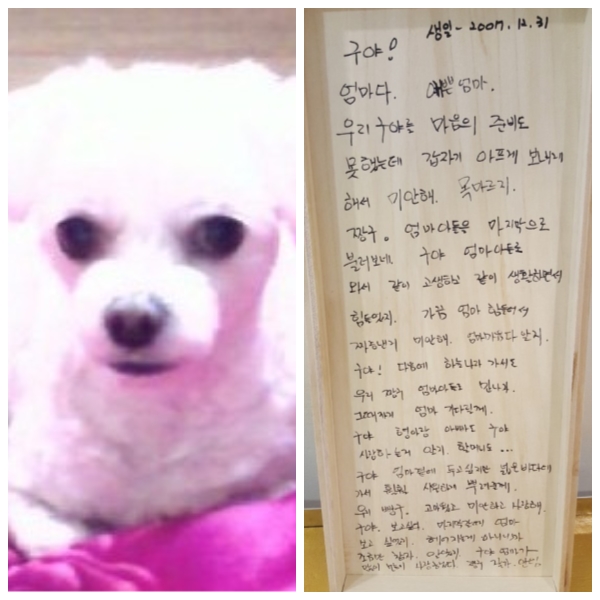 생일 - 2007.12.31
구야!
엄마다. 예쁜 엄마.
우리 구야를 마음의 준비도
못했는데 갑자기 아프게 보내게
해서 미안해.
짱구. 엄마아들을 마지막으로
불러보네. 구야 엄마아들로
와서 같이 고생하고 같이 생활하면서
힘들었지. 가끔 엄마 힘들어서
짜증낸거 미안해. 알지.
구야! 다음에 하늘나라 가서도
우리 짱구 엄마아들로 만나자.
그때까지 엄마 기다릴게.
구야 형아랑 아빠도 구야
사랑하는거 알지. 할머니도...
구야 엄마곁에 두고싶지만 넓은바다에
가서 뿌려줄게.
우리 짱구. 고마웠고 미안하고 사랑해.
구야. 보고싶다. 엄마
보고
구야 엄마가
많이 많이 사랑한다. 짱구 잘가. 안녕